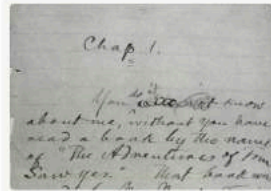 Chap 1.
You do not know
about me, without you have
read a book by the name
of "The Adventures of Tom
Sawyer." That book was